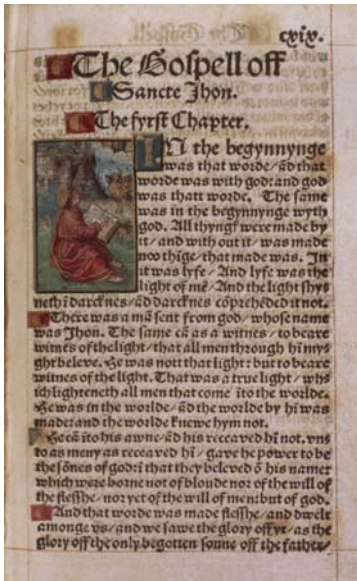 cxix.
The Gospell off
Sancte Jhon.
The fyrst Chapter.
IN the begynnynge
was that worde/ ād that
worde was with god: and god
was thatt worde. The same
was in the begynnynge wyth
god. All thyngs were made by
it/ and with out it/ was made
noo thīge/ that made was. In
it was lyfe/ And lyfe was the
light of mē/ And the light shy⸗
neth ī darcknes/ ād darcknes cōprehēded it not.
There was a mā sent from god/ whose name
was Jhon. The same cā as a witnes/ to beare
witnes of the light/ that all men through hī my⸗
ght beleve. He was nott that light: but to beare
witnes of the light. That was a true light/ whi⸗
ich lighteneth all men that come īto the worlde.
He was in the worlde/ ād the worlde by hī was
made: and the worlde knewe hym not.
He cā īto his awne/ ād his receaved hī not. vns
to as meny as receaved hī/ gave he power to be
the sōnes of god: ī that they beleved ō his name:
which were borne not of bloude nor of the will of
the flesshe/ nor yet of the will of men: but of god.
And that worde was made flesshe/ and dwelt
amonge vs/ and we sawe the glory off yt/ as the
glory off the only begotten sonne off the father/